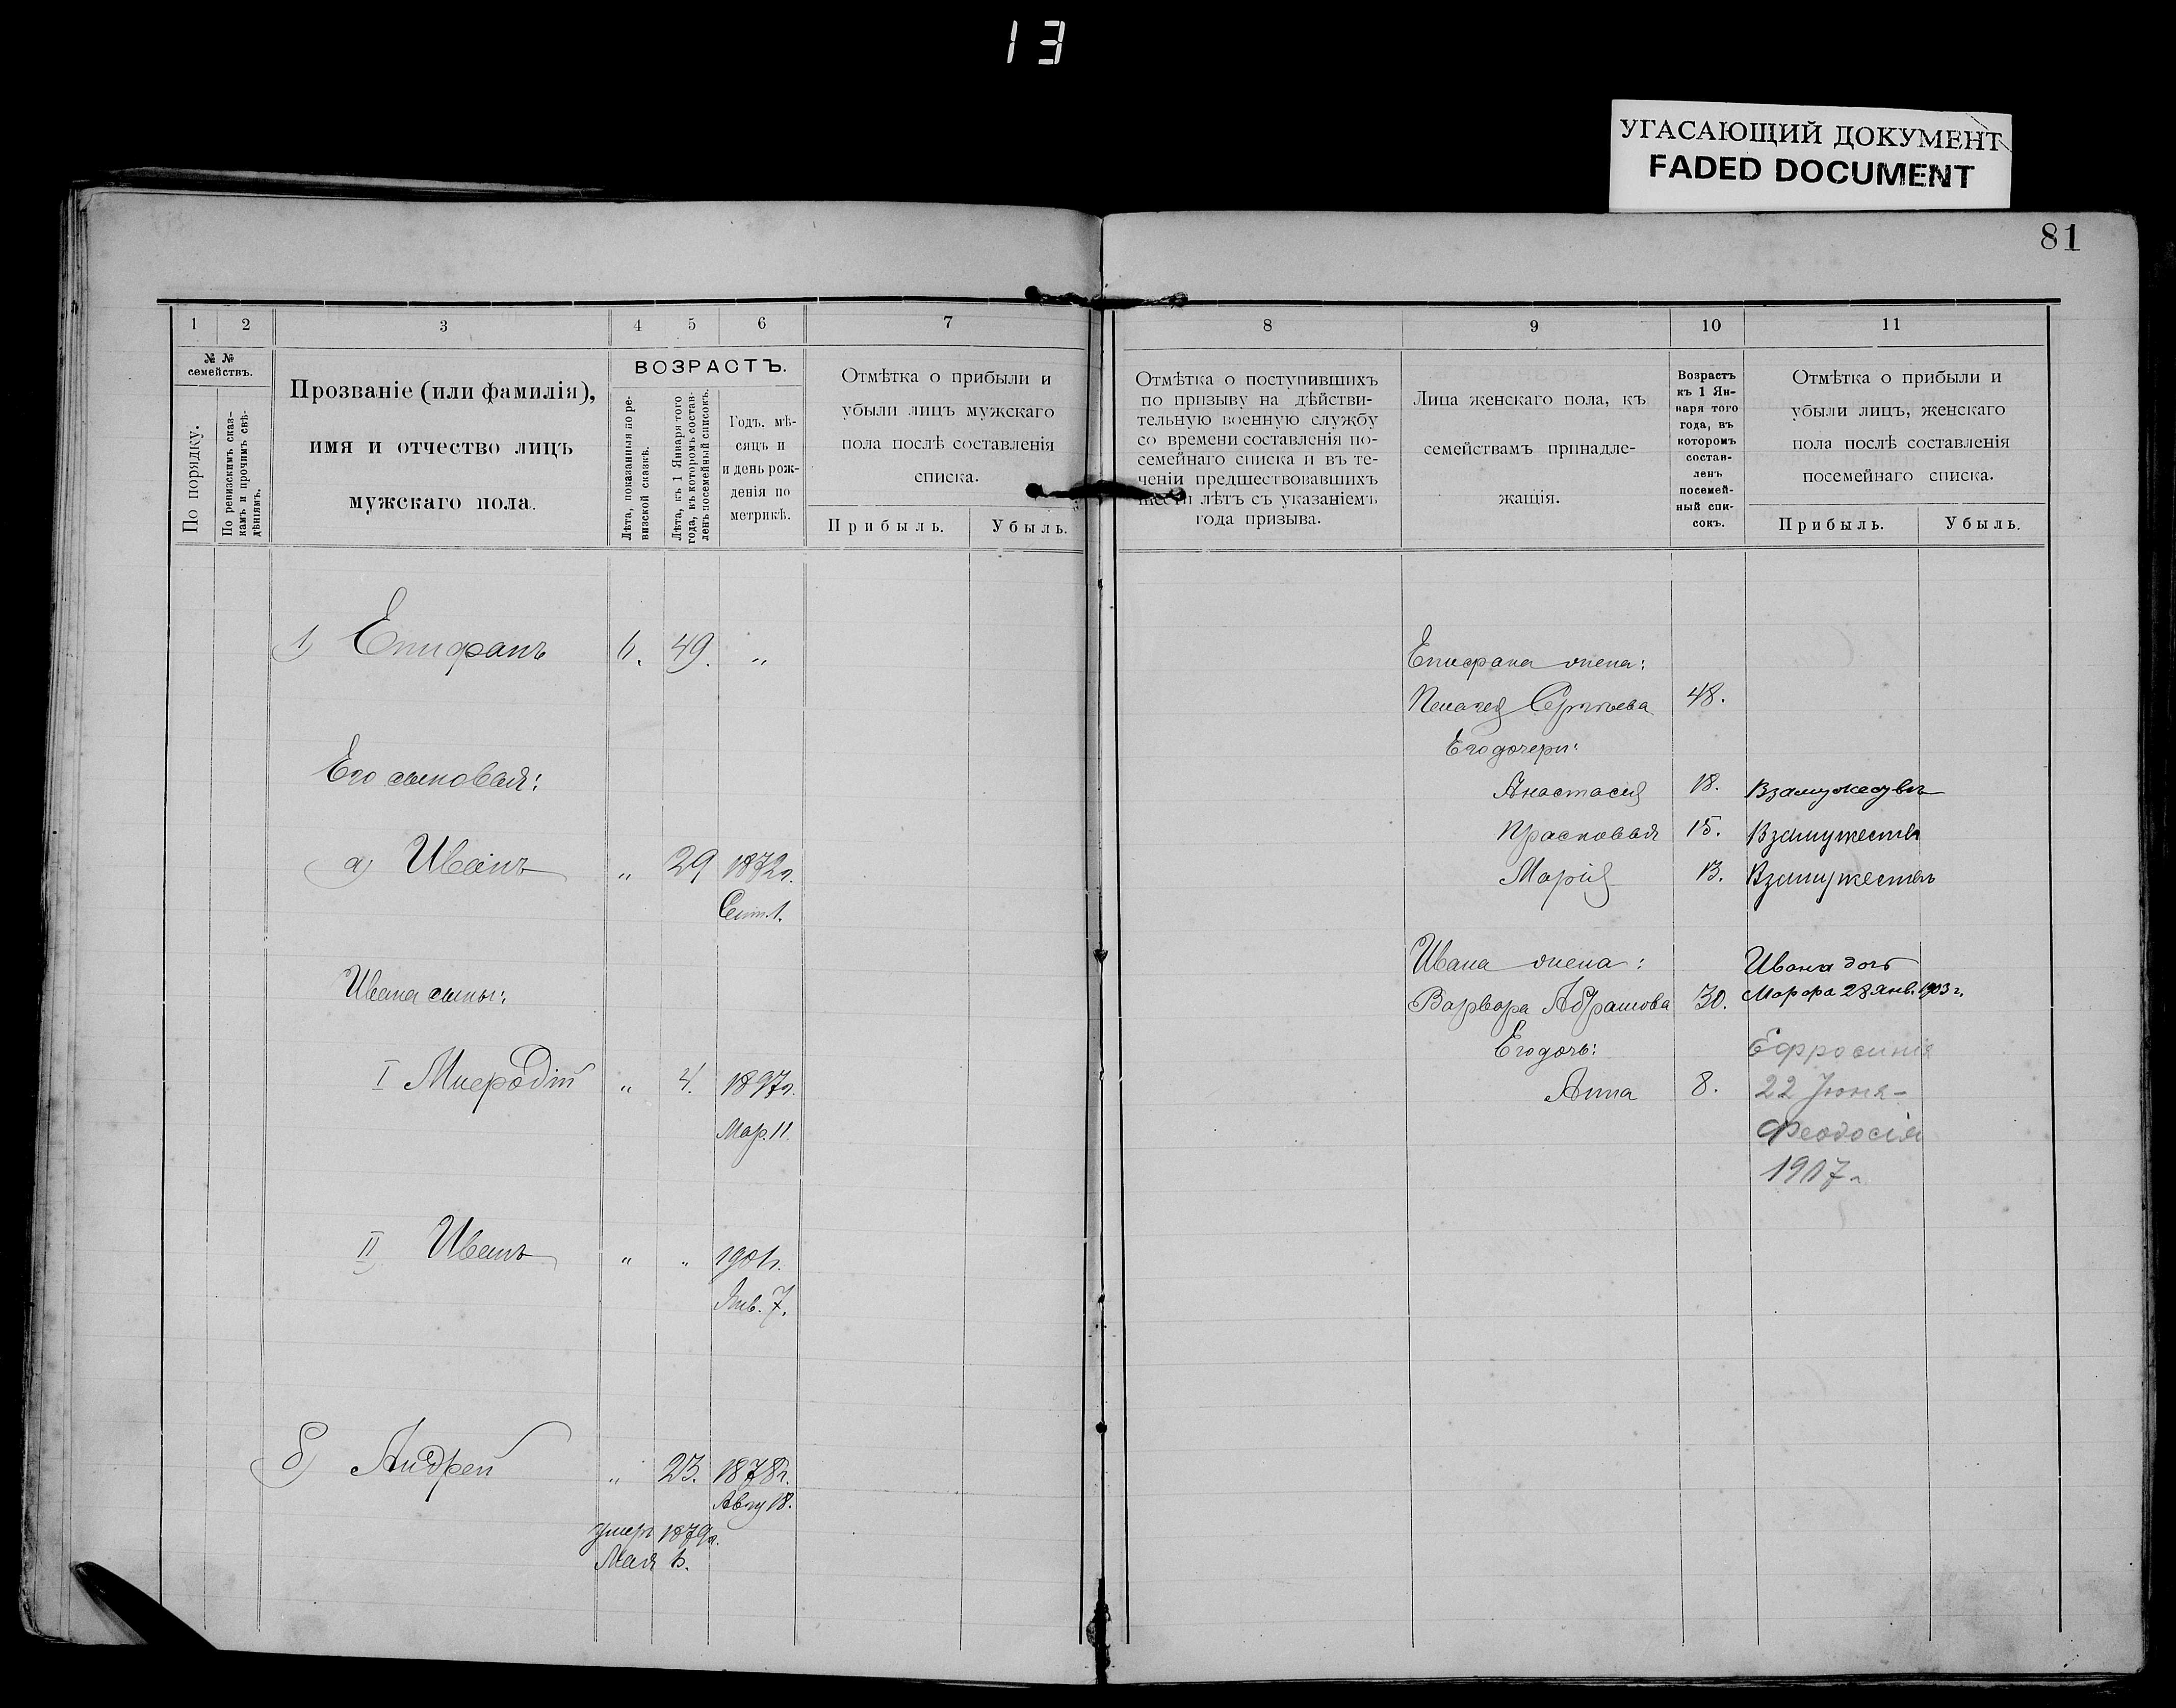 13
УГАСАЮЩИЙ ДОКУМЕНТ
FADED DOCUMENT
81
1 2 3 4 5 6 7
№ №
семействъ.
По порядку.
По ревизскимъ сказ-
камъ и прочимъ свѣ-
дѣніямъ.
Прозваніе (или фамилія),
имя и отчество лицъ
мужскаго пола.
ВОЗРАСТЪ.
Лѣта, показанныя по ре-
визской сказкѣ.
Лѣта, къ 1 Января того
года, въ которомъ состав-
ленъ посемейный списокъ.
Годъ, мѣ-
сяцъ и
и день рож-
денія по
метрикѣ.
Отмѣтка о прибыли и
убыли лицъ мужскаго
пола послѣ составленія
списка.
Прибыль. Убыль.
1) Епифанъ 6. 49. "
Его сыновья:
а) Иванъ " 29 1872г.
Сент. 1.
Ивана сыны:
I Мефодій " 4. 1897г.
Мар. 11.
II Иванъ " " 1901г.
Янв. 7.
б) Андрей " 23. 1878г.
Авгу 18.
умеръ 1879г.
Мая
8 9 10 11
Отмѣтка о поступившихъ
по призыву на дѣйстви-
тельную военную службу
со времени составленія по-
семейнаго списка и въ те-
ченіи предшествовавшихъ
шести лѣтъ съ указаніемъ
года призыва.
Лица женскаго пола, къ
семействамъ принадле-
жащія.
Возрастъ
къ 1 Ян-
варя того
года, въ
которомъ
состав-
ленъ
посемей-
ный спи-
сокъ.
Отмѣтка о прибыли и
убыли лицъ, женскаго
пола послѣ составленія
посемейнаго списка.
Прибыль. Убыль.
Епифана жена:
Пелагея 48.
Его дочери:
Анастасія 18. Взамужествѣ
Прасковья 15. Взамужествѣ
Марія 13. Взамужествѣ
Ивана жена: Ивана доч
Варвара Абрамова 30. Марфа 28 Янв. 1903 г.
Его дочь: Ефросинія
Анна 8. 22 Іюня -
Феодосія
1907 г